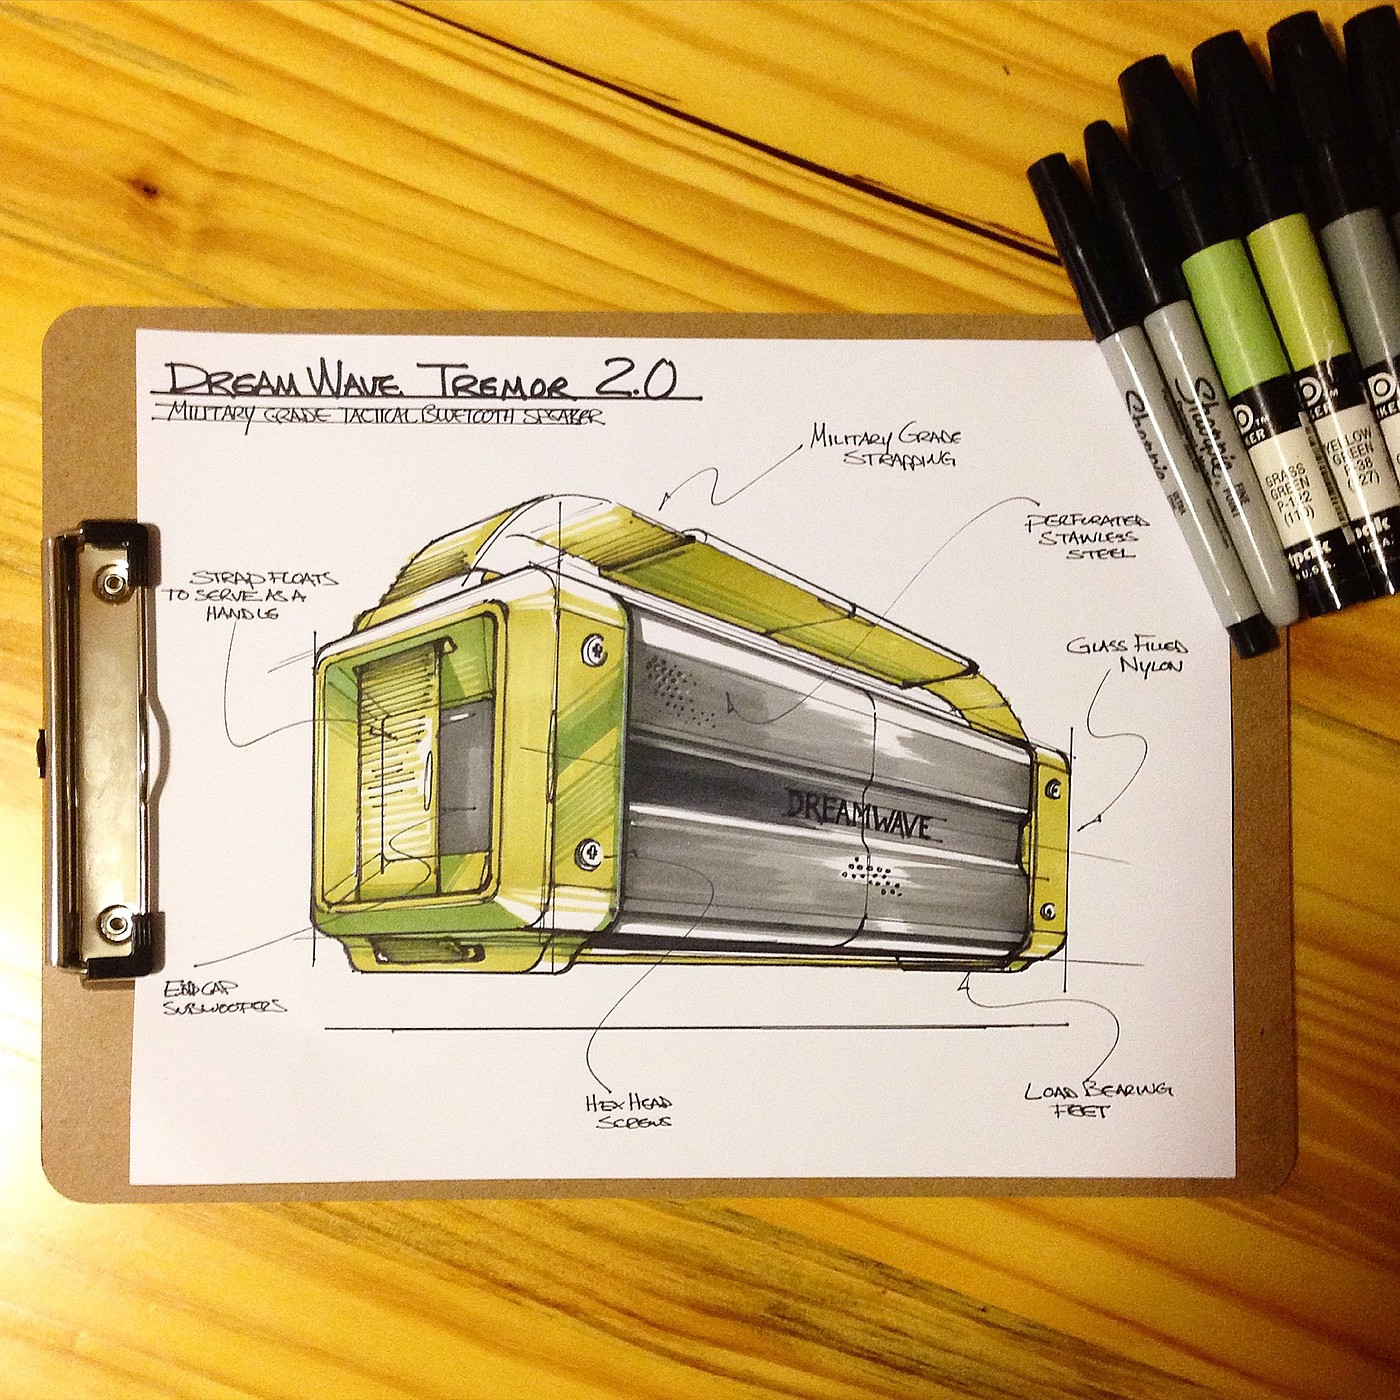 DREAMWAVE TREMOR 2.0
MILITARY GRADE TACTICAL BLUETOOTH SPEAKER
MILITARY GRADE
STRAPPING
PERFORATED
STAINLESS
STEEL
STRAP FLOATS
TO SERVE AS A
HANDLE
GLASS FILLED
NYLON
DREAMWAVE
END CAP
SUBWOOFERS
HEX HEAD
SCREWS
LOAD BEARING
FEET
Sharpie
Sharpie
FINE
POINT
GRASS
GREEN
P-182
YELLOW
GREEN
P-38
(27)
U.S.A.